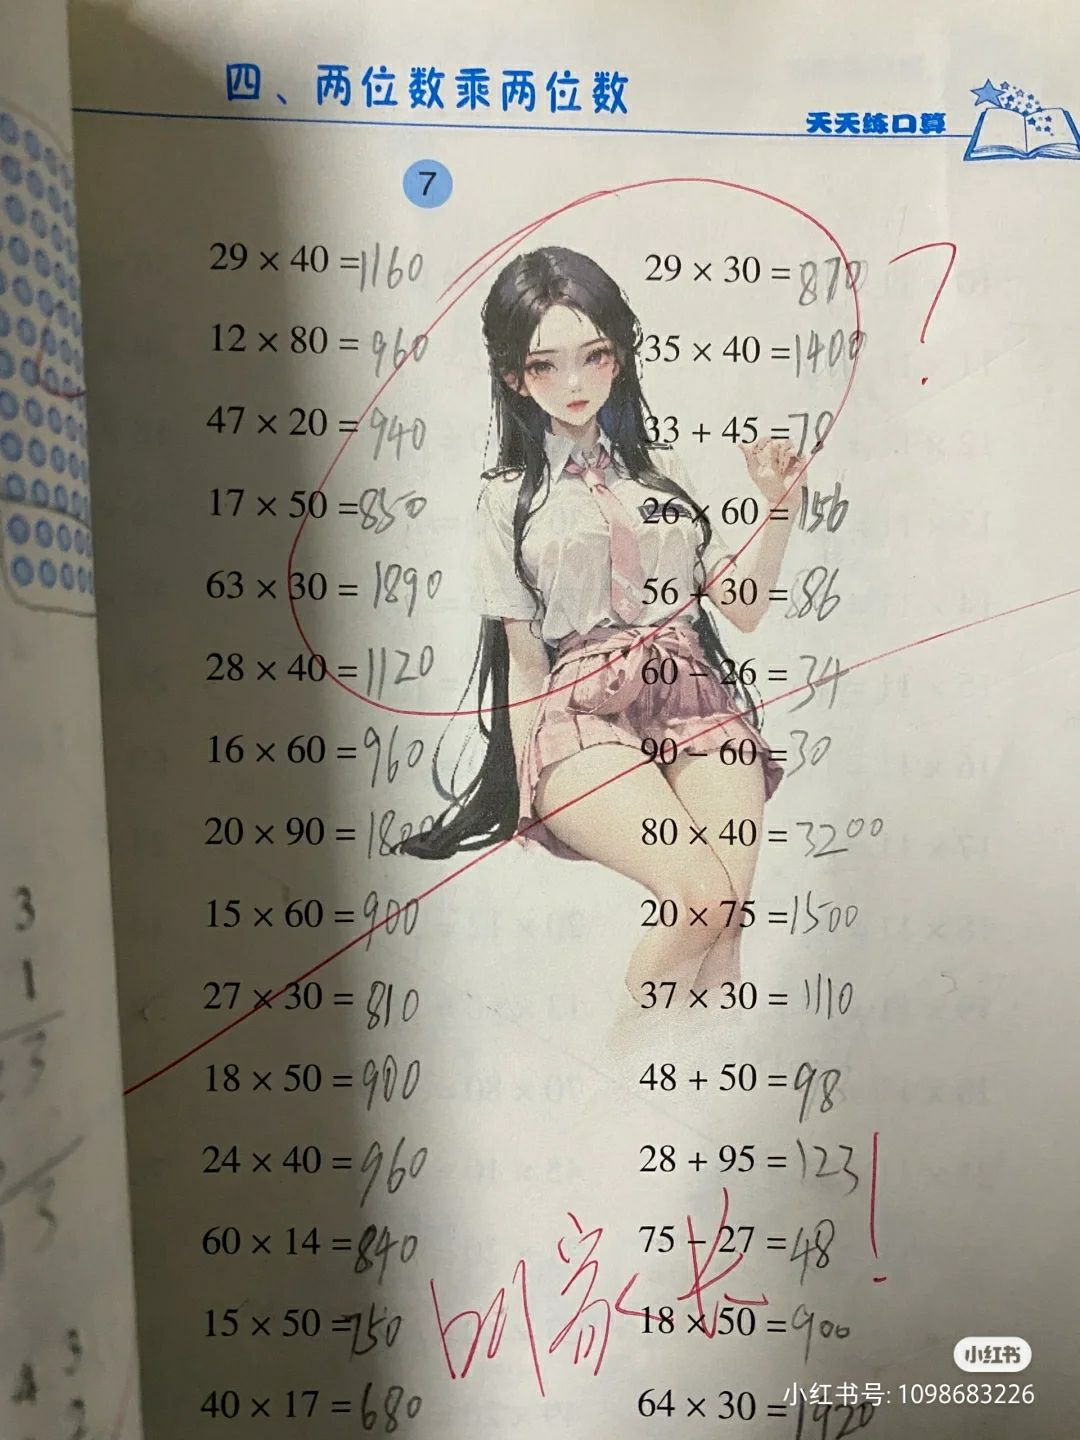 四、两位数乘两位数
天天练口算
7
29 × 40 =1160
29 × 30 = 870
?
12 × 80 = 960
35 × 40 =1400
47 × 20 = 940
33 + 45 =78
17 × 50 =850
26 × 60 = 156
63 × 30 = 1890
56 + 30 =86
28 × 40 =1120
60 − 26 = 34
16 × 60 =960
90 − 60 =30
20 × 90 =1800
80 × 40 =3200
15 × 60 =900
20 × 75 =1500
27 × 30 = 810
37 × 30 = 1110
18 × 50 =900
48 + 50 =98
24 × 40 =960
28 + 95 =123
60 × 14 =840
75 − 27 =48
叫家长!
15 × 50 =750
18 × 50 =900
40 × 17 =680
64 × 30 =1920
3
1
3
2
小红书
小红书号: 1098683226